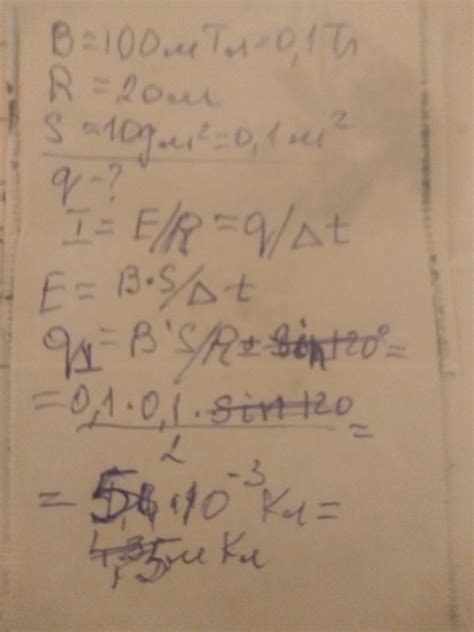 B = 100 мТл = 0,1 Тл
R = 2 Ом
S = 10 дм² = 0,1 м²
q - ?
I = E/R = q/Δt
E = B·S/Δt
q = B·S/R · sin 120° =
= 0,1 · 0,1 · sin 120
2
=
= 10⁻³ Кл =
мКл